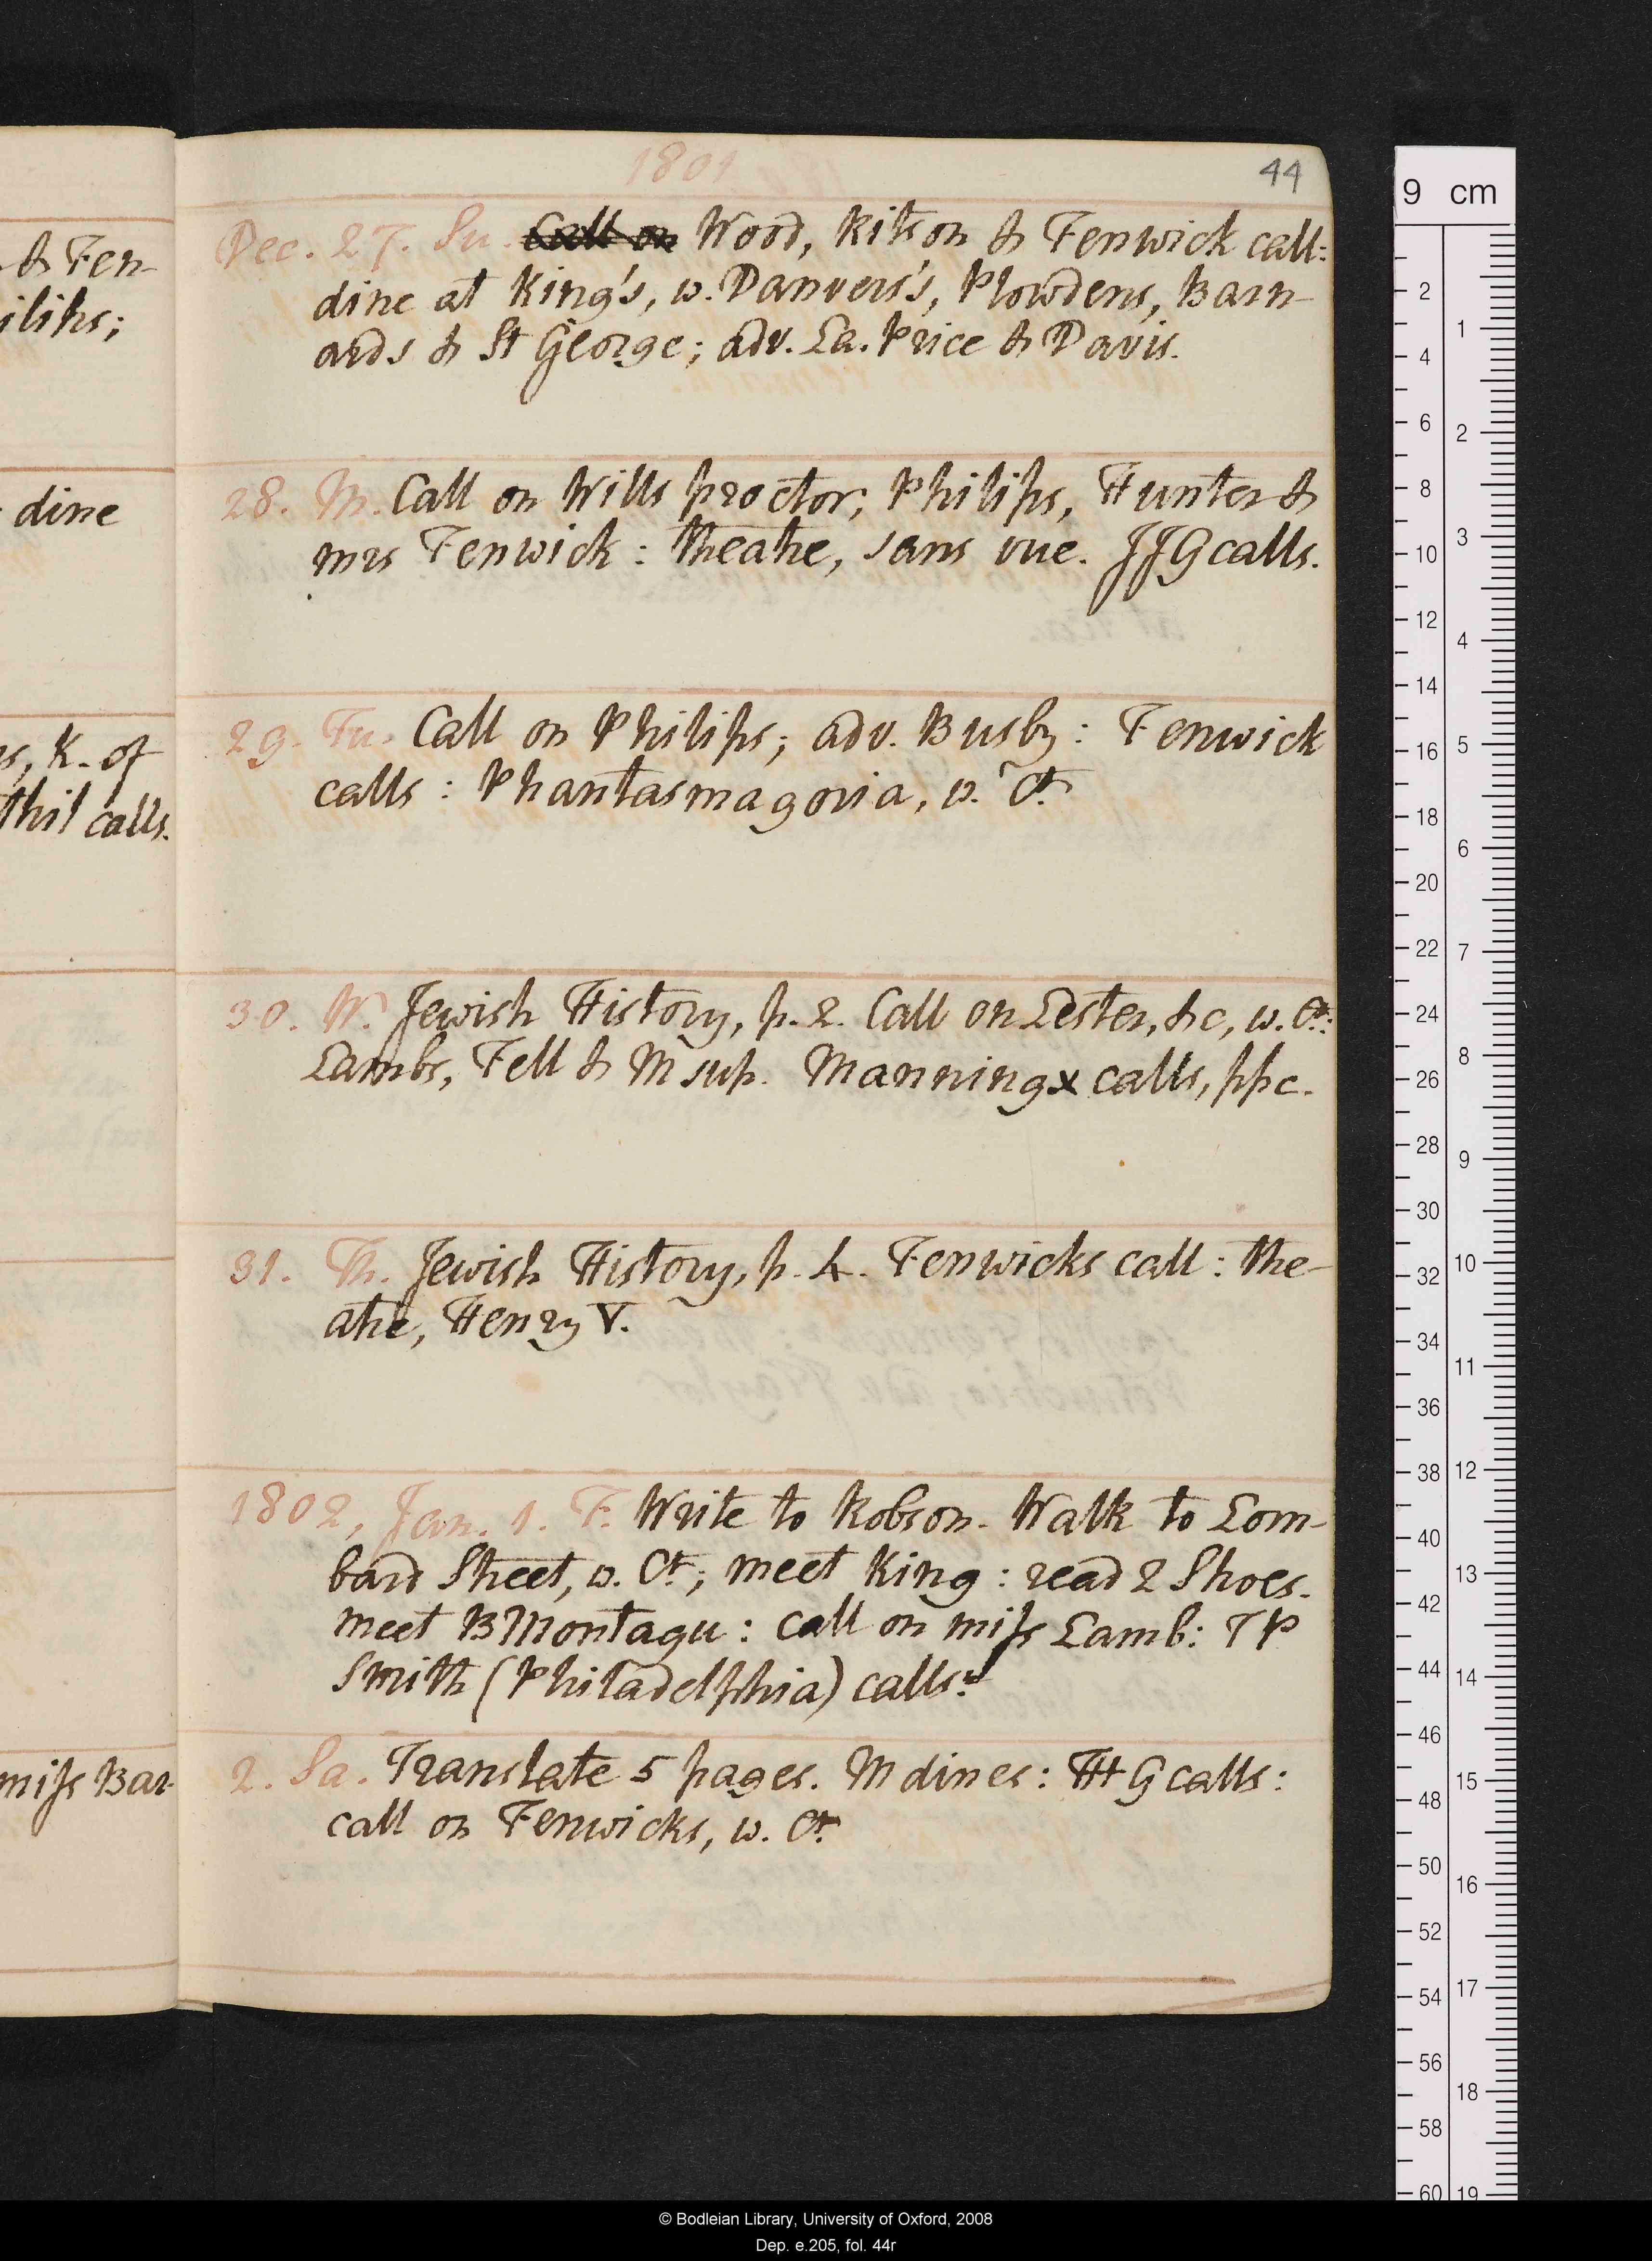 1801
44
Dec. 27. Su. Call on Wood, Ritson & Fenwick call:
dine at King's, w. Danvers's, Plowdens, Barn-
ards & St George; adv. La. Price & Davis.
28. M. Call on Wills proctor; Philips, Hunter &
mrs Fenwick: theatre, sans vue. JJG calls.
29. Tu. Call on Philips; adv. Busby: Fenwick
calls: Phantasmagoria, w. Ct.
30. W. Jewish History, p. 2. Call on Lester, &c, w. Ct:
Lambs, Fell & M sup. Manning x calls, ppc.
31. Th. Jewish History, p. 4. Fenwicks call: the-
atre, Henry V.
1802, Jan. 1. F. Write to Robson. Walk to Lom-
bard Street, w. Ct; meet King: read 2 Shoes.
meet BMontagu: call on miss Lamb: T P
Smith (Philadelphia) calls.
2. Sa. Translate 5 pages. M dines: HG calls:
call on Fenwicks, w. Ct.
& Fen-
ilips;
dine
s, K. of
thil calls.
miss Bar-
9 cm
2
4
6
8
10
12
14
16
18
20
22
24
26
28
30
32
34
36
38
40
42
44
46
48
50
52
54
56
58
60
1
2
3
4
5
6
7
8
9
10
11
12
13
14
15
16
17
18
19
© Bodleian Library, University of Oxford, 2008
Dep. e.205, fol. 44r